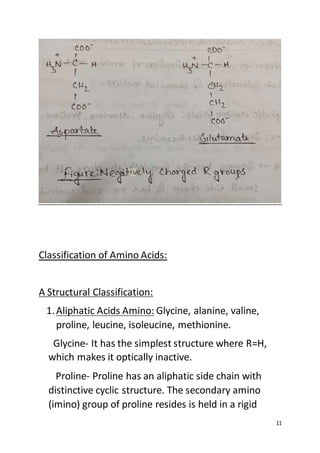 COO⁻ COO⁻
H₃N⁺ - C - H H₃N⁺ - C - H
CH₂ CH₂
COO⁻ CH₂
COO⁻
Aspartate Glutamate
Figure:Negatively Charged R groups
Classification of Amino Acids:
A Structural Classification:
1. Aliphatic Acids Amino: Glycine, alanine, valine,
proline, leucine, isoleucine, methionine.
Glycine- It has the simplest structure where R=H,
which makes it optically inactive.
Proline- Proline has an aliphatic side chain with
distinctive cyclic structure. The secondary amino
(imino) group of proline resides is held in a rigid
11